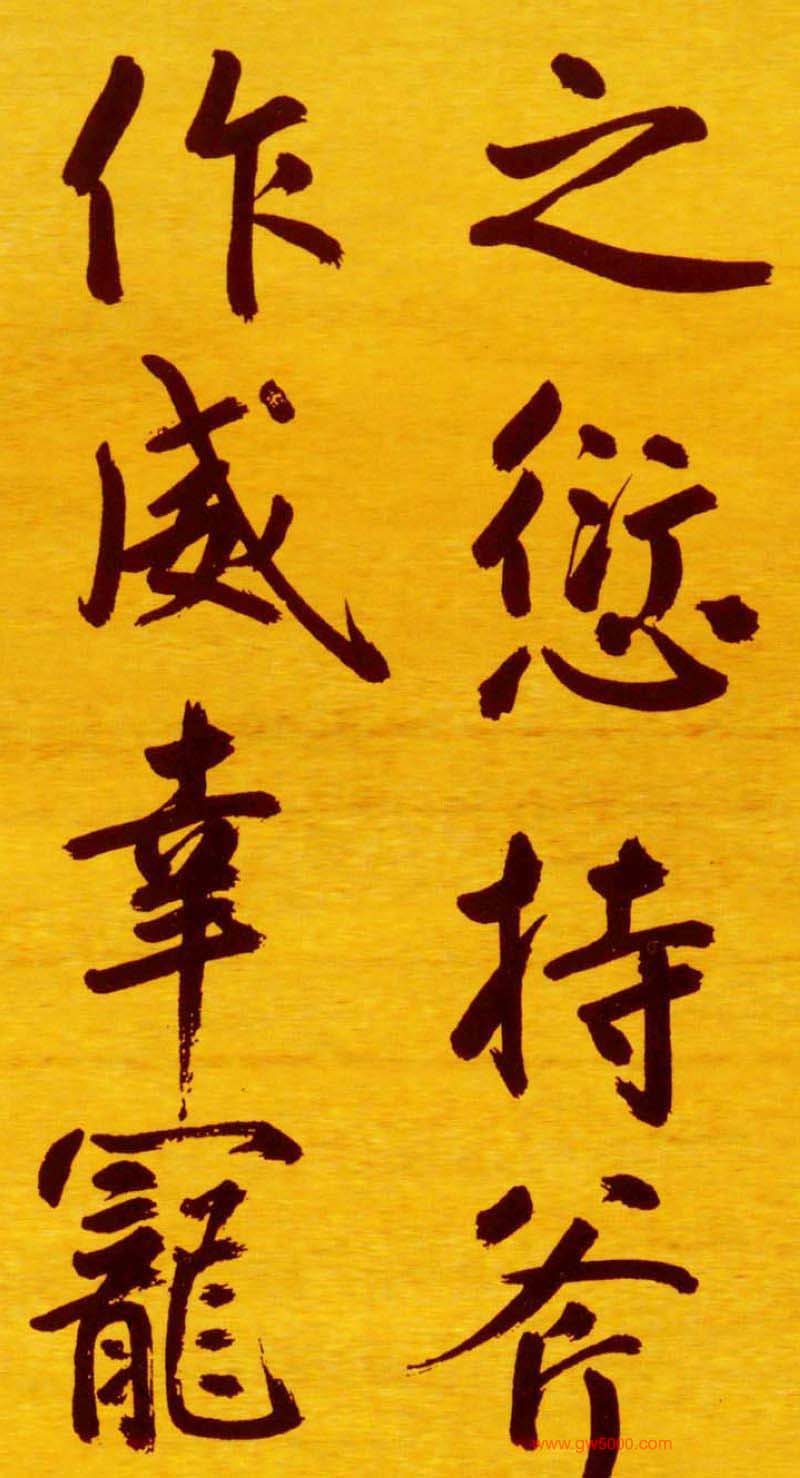 之愆持斧
作威幸寵
www.gw5000.com